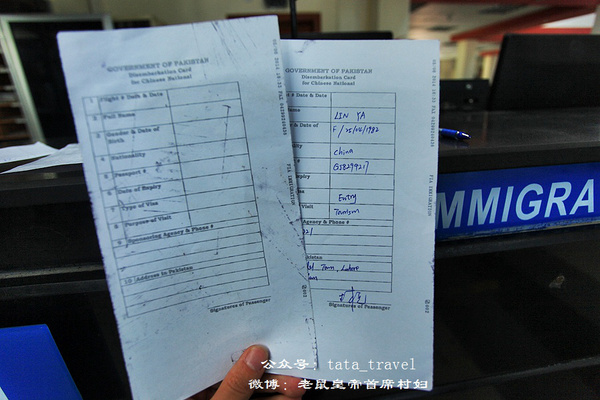 GOVERNMENT OF PAKISTAN
Disembarkation Card
for Chinese National
1 Flight # Date & Date
2 Full Name
3 Gender & Date of
Birth
4 Nationality
5 Passport #
6 Date of Expiry
7 Type of Visa
8 Purpose of Visit
9 Sponsoring Agency & Phone #
10 Address in Pakistan
Signatures of Passenger
GOVERNMENT OF PAKISTAN
Disembarkation Card
for Chinese National
# Date & Date
ame LIN YA
& Date of F/25/04/1982
ity China
#
piry
isa Entry
Visit Tourism
Agency & Phone #
kistan
Town, Lahore
Signatures of Passenger
FIA IMMIGRATION
MMIGRA
公众号：tata_travel
微博：老鼠皇帝首席村妇